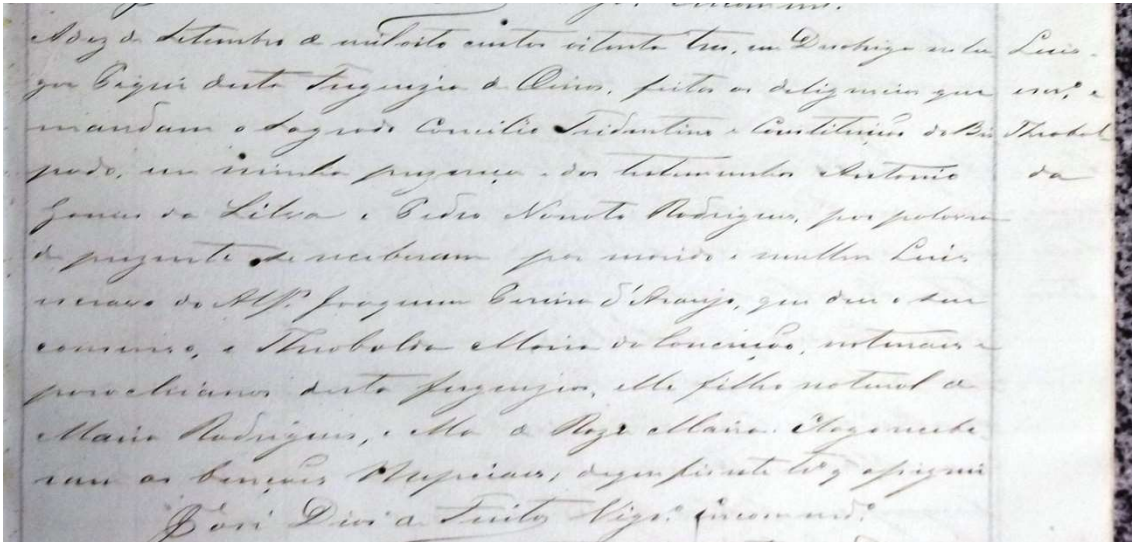 A dez de Setembro de mil oito centos oitenta tres, em
Luis
desta Freguezia de Oeiras, feitas as deligencias que
escrº e
mandam o Sagrado Concilio Tridentino e Constituiçaõ do Bis
Theobal
pado, em minha prezença e das testemunhas Antonio
da
Gomes da Silva e Pedro Nonato Rodrigues, por palavras
de prezente se receberam por marido e mulher Luis
escravo do Alfˢ Joaquim Pereira d'Araujo, que deu o seu
consenso, e Theobalda Maria da Conceiçaõ, naturaes e
parochianos desta freguezia, elle filho natural de
Maria Rodrigues, e ella de Roza Maria. E logo recebe
ram as bençaõs Nupciaes; do que fiz este tº q assignei
José Dias de Freitas Vigrº Encommendº